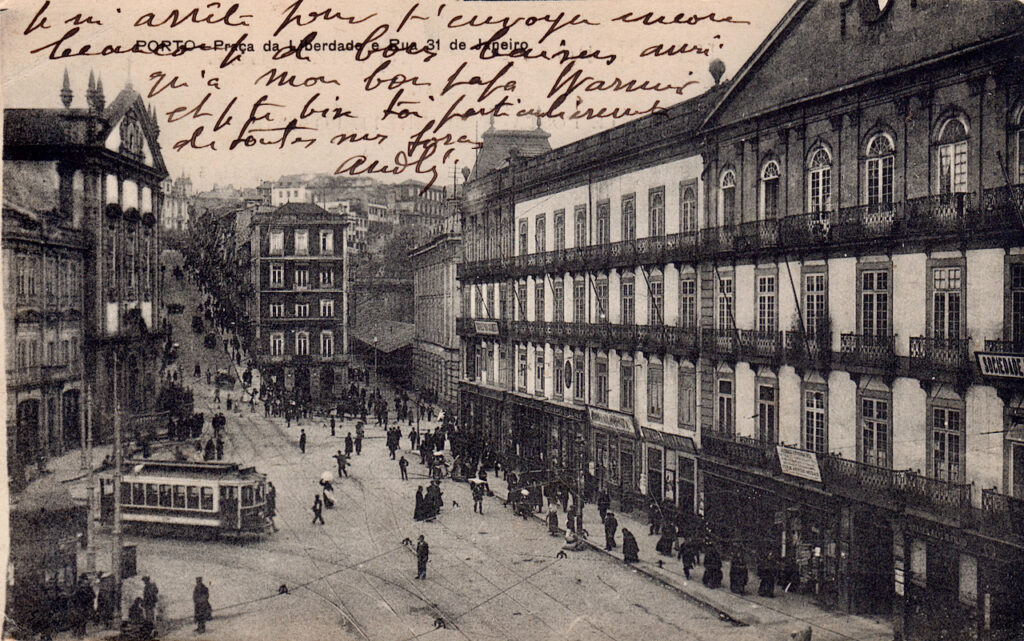 je m'arrête pour t'envoyer encore
PORTO - Praça da Liberdade e Rue 31 de Janeiro
beaucoup de bons baisers ainsi
qu'a mon bon papa Warnier
et je te bise toi particulièrement
de toutes mes forces
SOCIEDADE